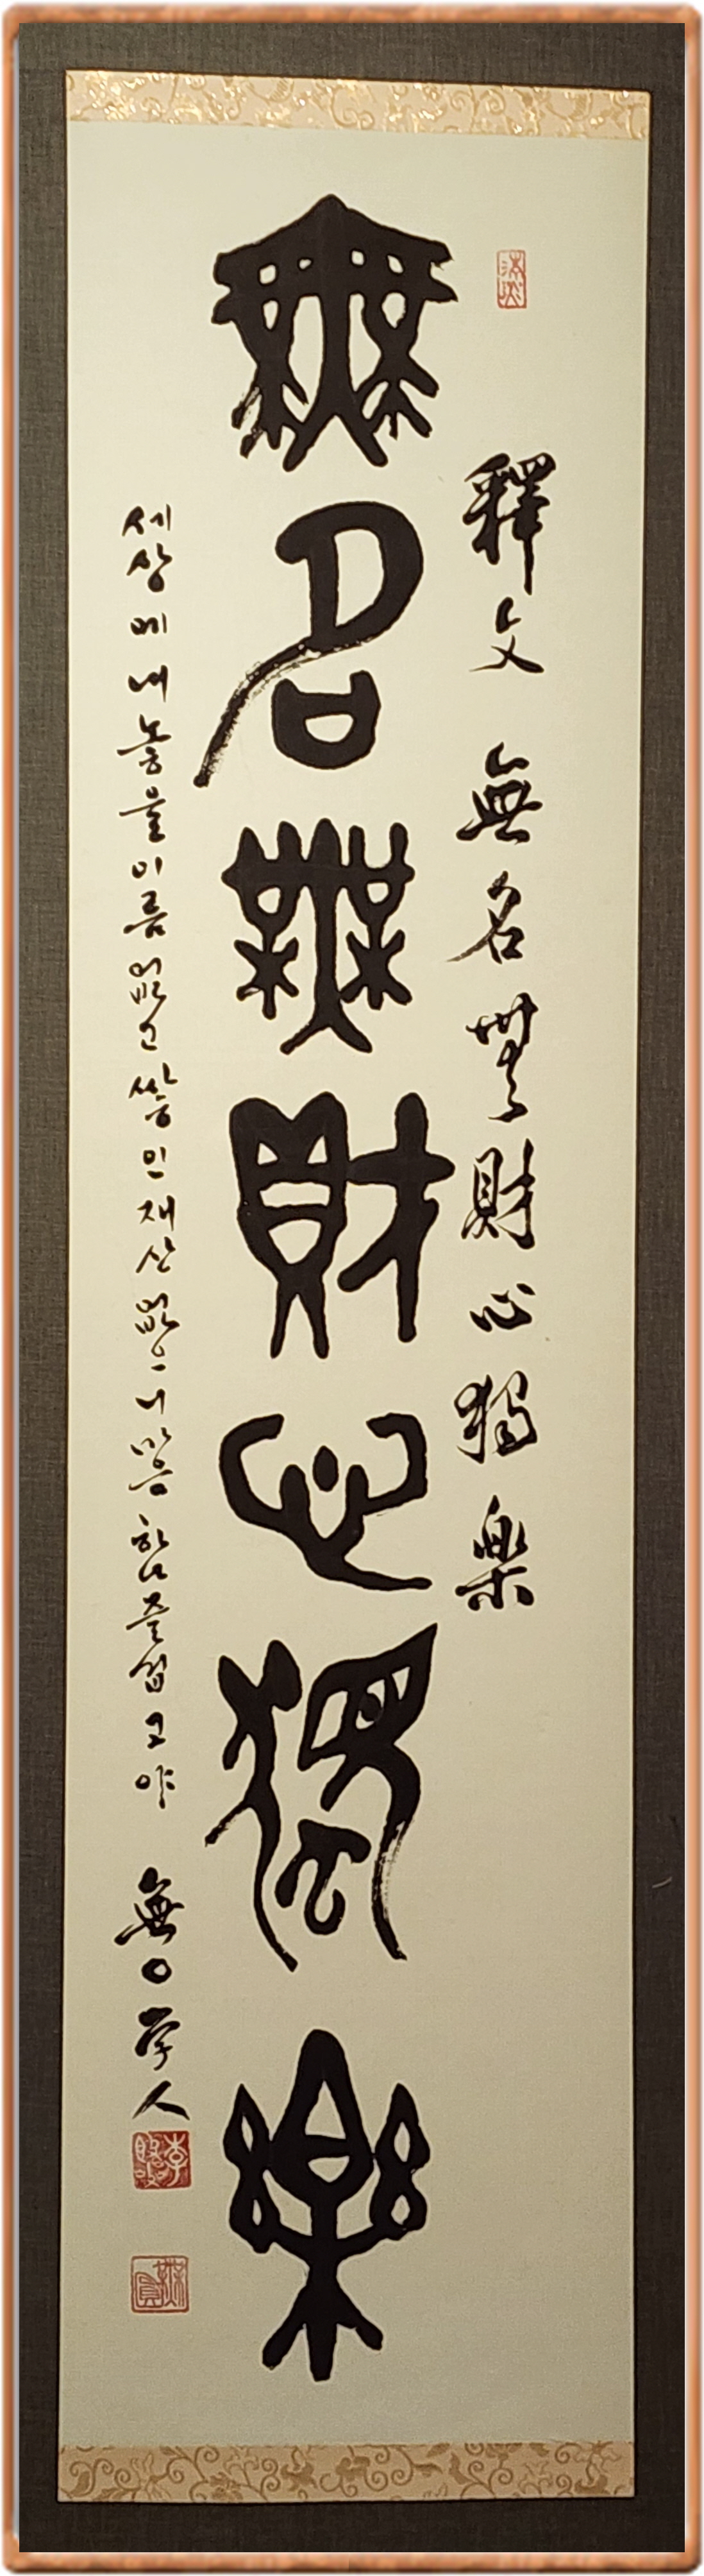 釋文 無名無財心獨樂
無名無財心獨樂
세상에 내놓을 이름 없고 쌓인 재산 없으니 마음 즐겁고야 無○学人